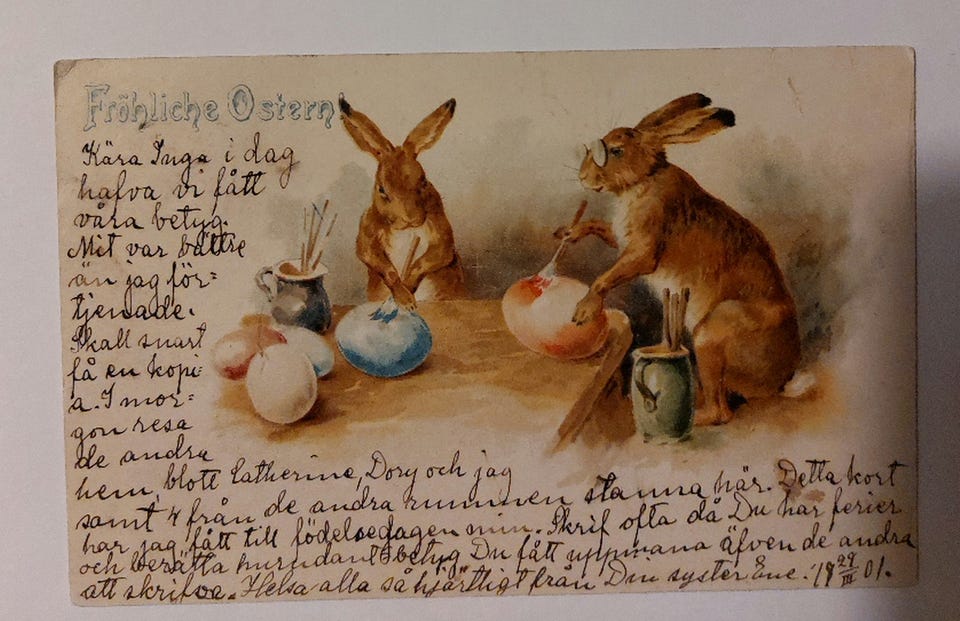 Fröhliche Ostern!
Kära Inga i dag
hafva vi fått
våra betyg.
Mit var bättre
än jag för=
tjenade.
Skall snart
få en kopi=
a. I mor=
gon resa
de andra
hem, blott Catherine, Dory och jag
samt 4 från de andra rummen stanna här. Detta kort
har jag fått till födelsedagen min. Skrif ofta då Du har ferier
och berätta hurudant betyg Du fått uppmana äfven de andra
att skrifva. Helsa alla så hjärtligt från Din syster Eve. 19 29/III 01.